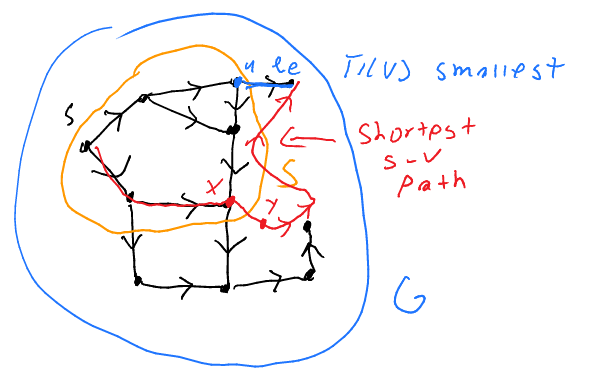 u le π(v) smallest
s
Shortest
s-v
path
S
x
y
G